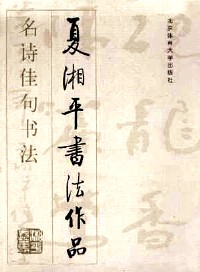 北京体育大学出版社
夏湘平書法作品
名诗佳句书法